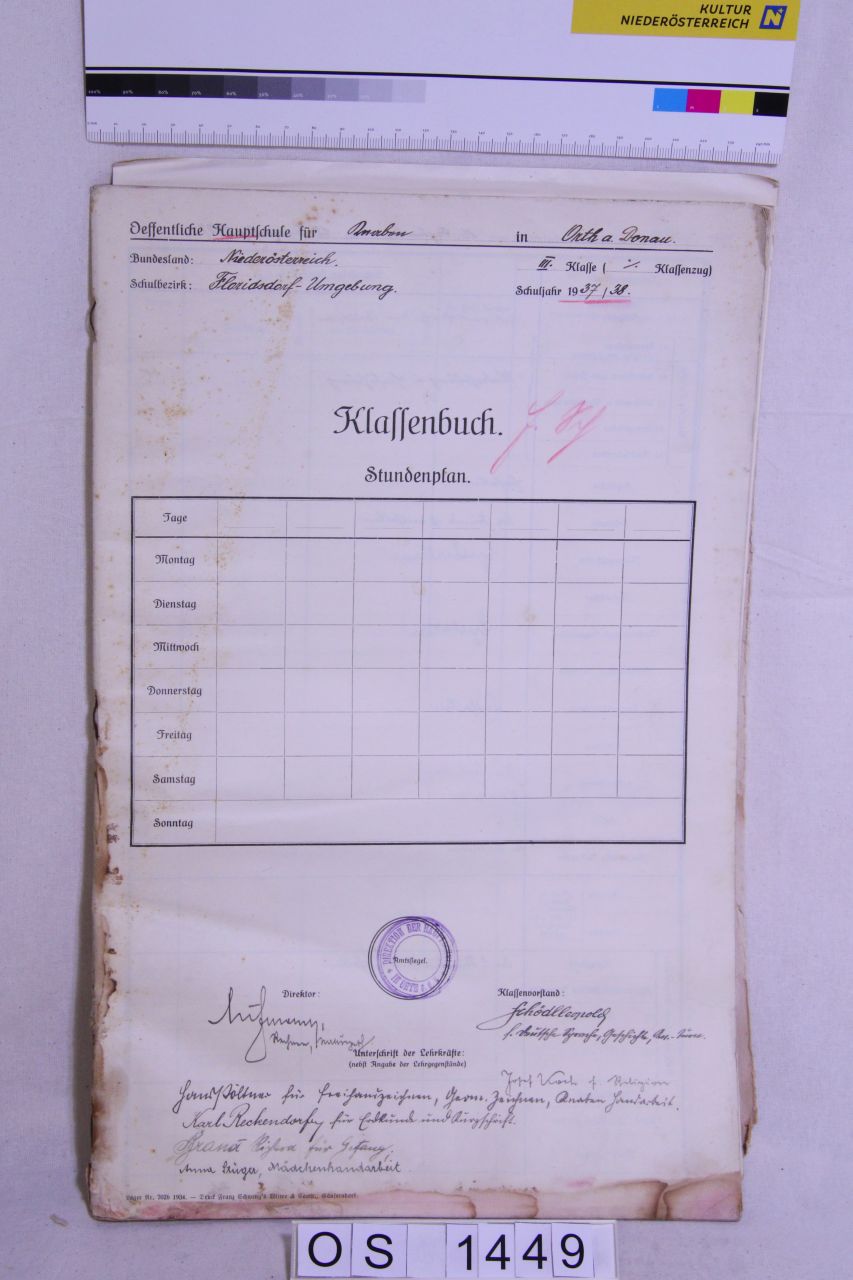 KULTUR
NIEDERÖSTERREICH
Oeffentliche Hauptschule für Knaben in Orth a. Donau.
Bundesland: Niederösterreich. III. Klasse ( ./. Klassenzug)
Schulbezirk: Floridsdorf-Umgebung. Schuljahr 1937/38.
Klassenbuch.
Stundenplan.
Tage
Montag
Dienstag
Mittwoch
Donnerstag
Freitag
Samstag
Sonntag
DIREKTION DER
IN ORTH
Amtssiegel.
Direktor: Klassenvorstand:
f. Deutsche Sprache, Geschichte,
Unterschrift der Lehrkräfte:
(nebst Angabe der Lehrgegenstände)
Josef f. Religion
Hans Pöltner für Freihandzeichnen, Geom. Zeichnen, Knaben Handarbeit.
Karl Reckendorf für Erdkunde und Kurzschrift.
für Gesang.
Anna Krüger, Mädchenhandarbeit.
Lager Nr. 7026 1934. — Druck Franz Schwung's Witwe & Sohn, Gänserndorf.
OS 1449